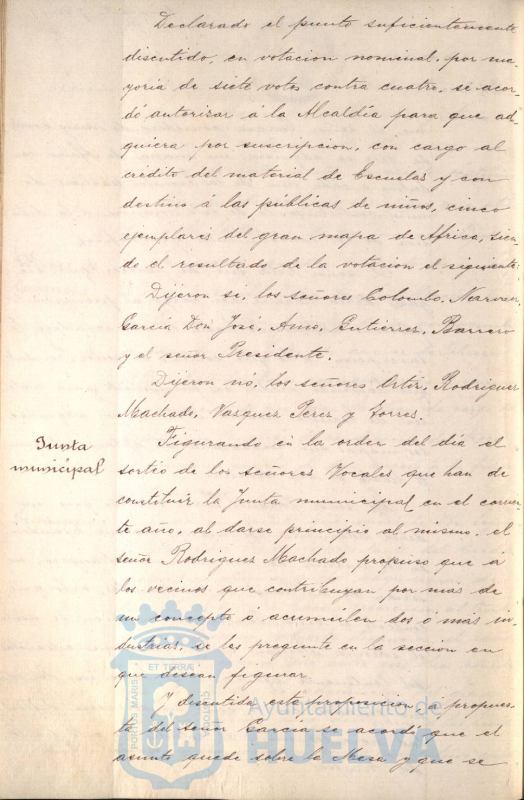 Declarado el punto suficientemente
discutido, en votacion nominal, por ma-
yoria de siete votos contra cuatro, se acor-
dó autorizar á la Alcaldía para que ad-
quiera por suscripcion, con cargo al
crédito del material de Escuelas y con
destino á las públicas de niños, cinco
ejemplares del gran mapa de Africa, sien-
do el resultado de la votacion el siguiente:
Dijeron si, los señores Colombo, Narvaez,
García Don José, Amo, Gutierrez, Barrero
y el señor Presidente.
Dijeron nó, los señores Ortiz, Rodriguez
Machado, Vazquez Perez y Torres.
Junta
municipal
Figurando en la orden del día el
sorteo de los señores Vocales que han de
constituir la Junta municipal en el corrien-
te año, al darse principio al mismo, el
señor Rodriguez Machado propuso que á
los vecinos que contribuyan por mas de
un concepto ó acumulen dos ó mas in-
dustrias, se les pregunte en la seccion en
que desean figurar.
Y discutida esta proposicion á propues-
ta del señor García se acordó que el
asunto quede sobre la Mesa y que se
PORTUS MARIS
ET TERRÆ
CUSTODIA
Ayuntamiento de
HUELVA